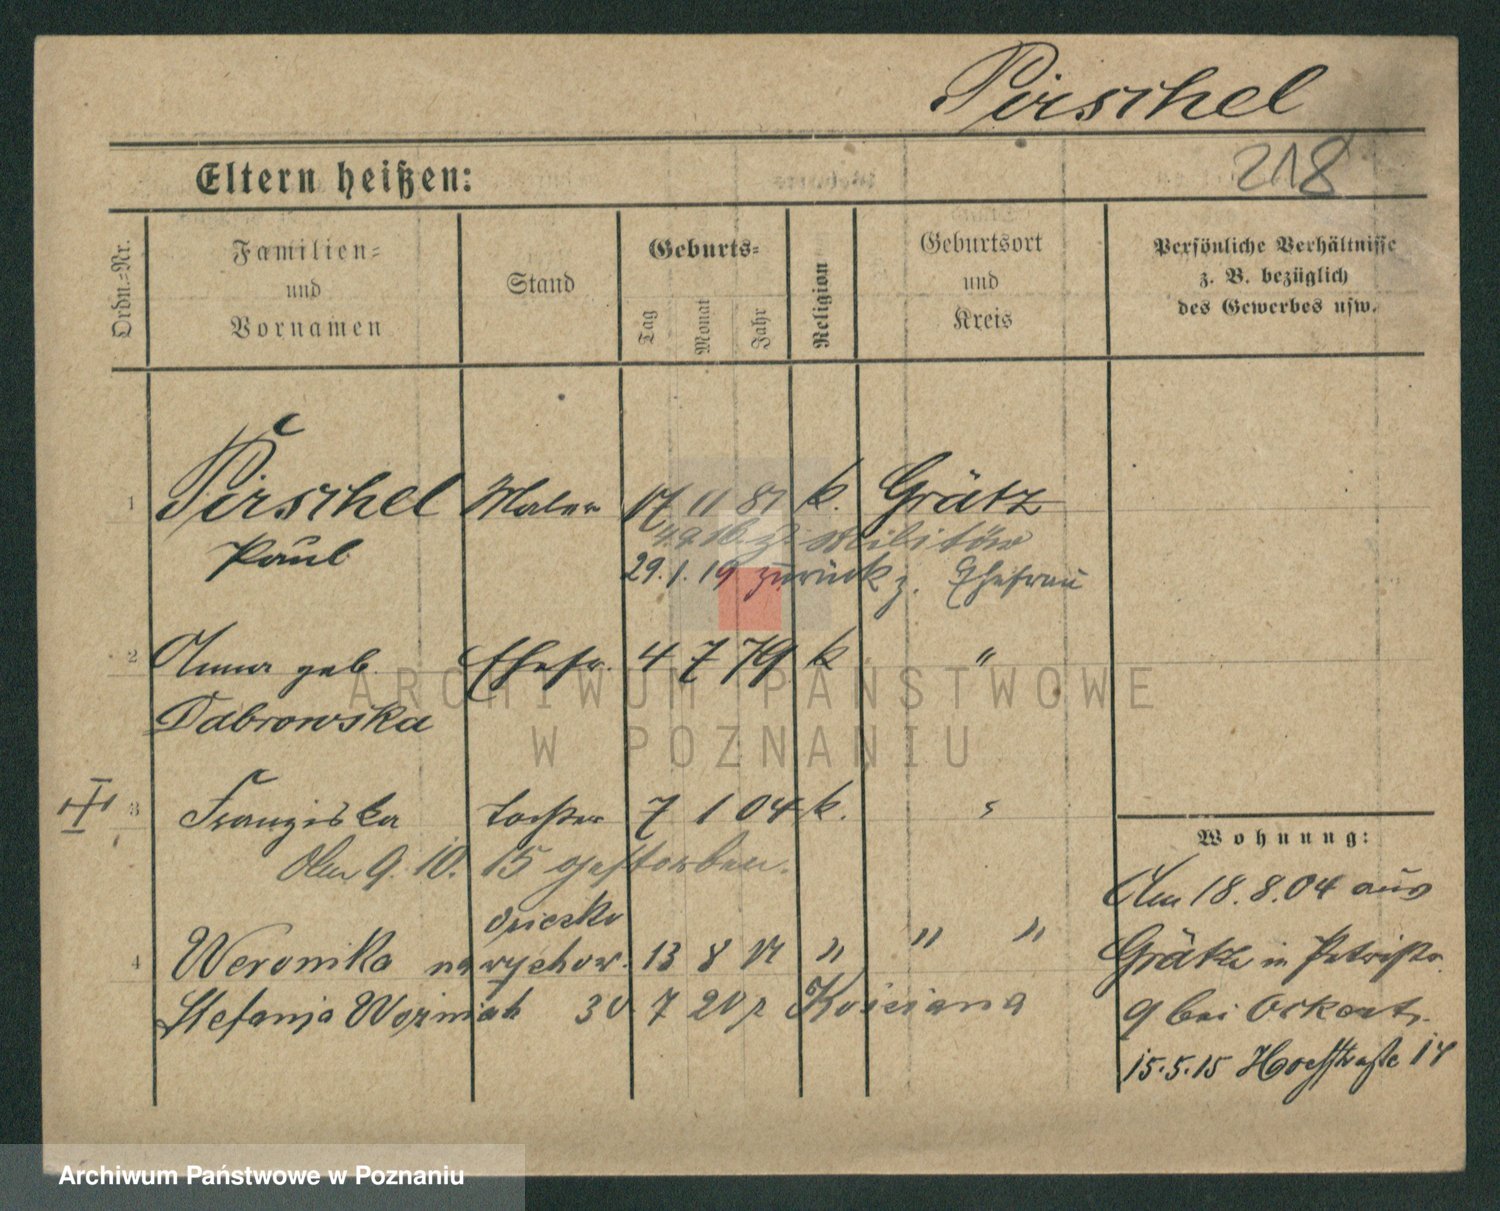 Pirschel
218
Eltern heißen:
Ordn.-Nr.
Familien-
und
Vornamen
Stand
Geburts-
Tag
Monat
Jahr
Religion
Geburtsort
und
Kreis
Persönliche Verhältnisse
z. B. bezüglich
des Gewerbes usw.
1 Pirschel Maler 17 11 81 k. Grätz
Paul z. Militär
29.1.19 zurück z. Ehefrau
2 Anna geb. Ehefr. 4 7 79 k "
Dabrowska
3 Franziska Tochter 7 1 04 k. "
Am 9. 10. 15 gestorben.
dziecko
4 Weronika na wychow. 13 8 " " "
Stefanja Woźniak 30. 7 20 r Kościana
Wohnung:
Am 18.8.04 aus
Grätz in Patrisstr.
9 bei
15.5.15 14
ARCHIWUM PAŃSTWOWE
W POZNANIU
Archiwum Państwowe w Poznaniu